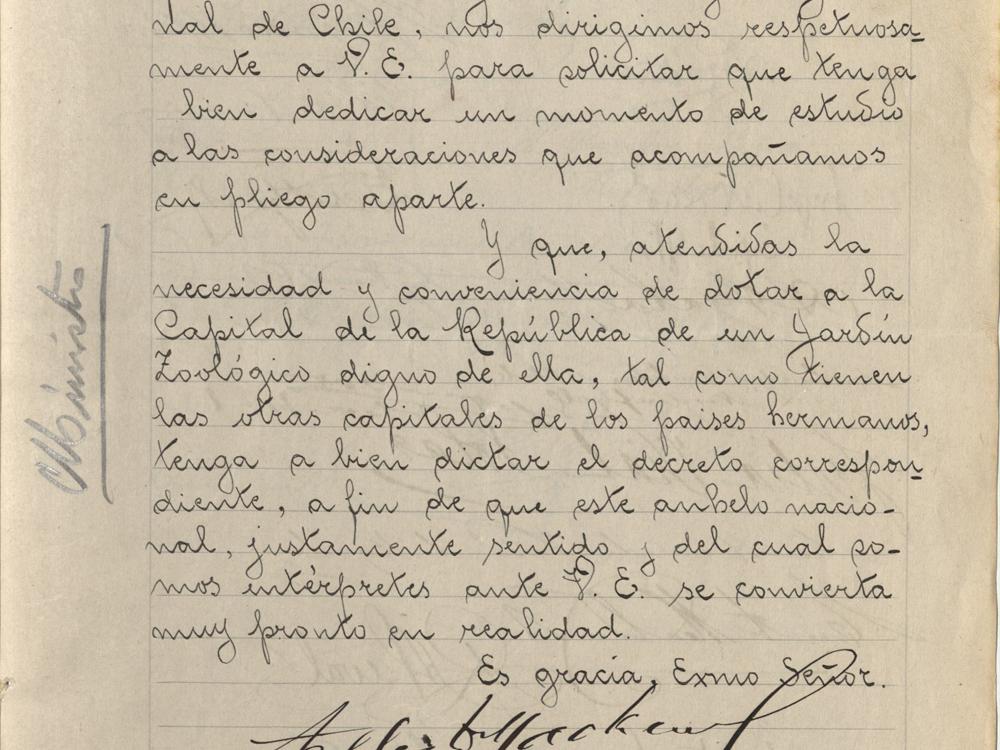 nal de Chile, nos dirigimos respetuosa-
mente a V. E. para solicitar que tenga
bien dedicar un momento de estudio
a las consideraciones que acompañamos
en pliego aparte.
Y que, atendidas la
necesidad y conveniencia de dotar a la
Capital de la República de un Jardín
Zoológico digno de ella, tal como tienen
las otras capitales de los paises hermanos,
tenga a bien dictar el decreto correspon-
diente, a fin de que este anhelo nacio-
nal, justamente sentido y del cual so-
mos intérpretes ante V. E. se convierta
muy pronto en realidad.
Es gracia, Exmo Señor.